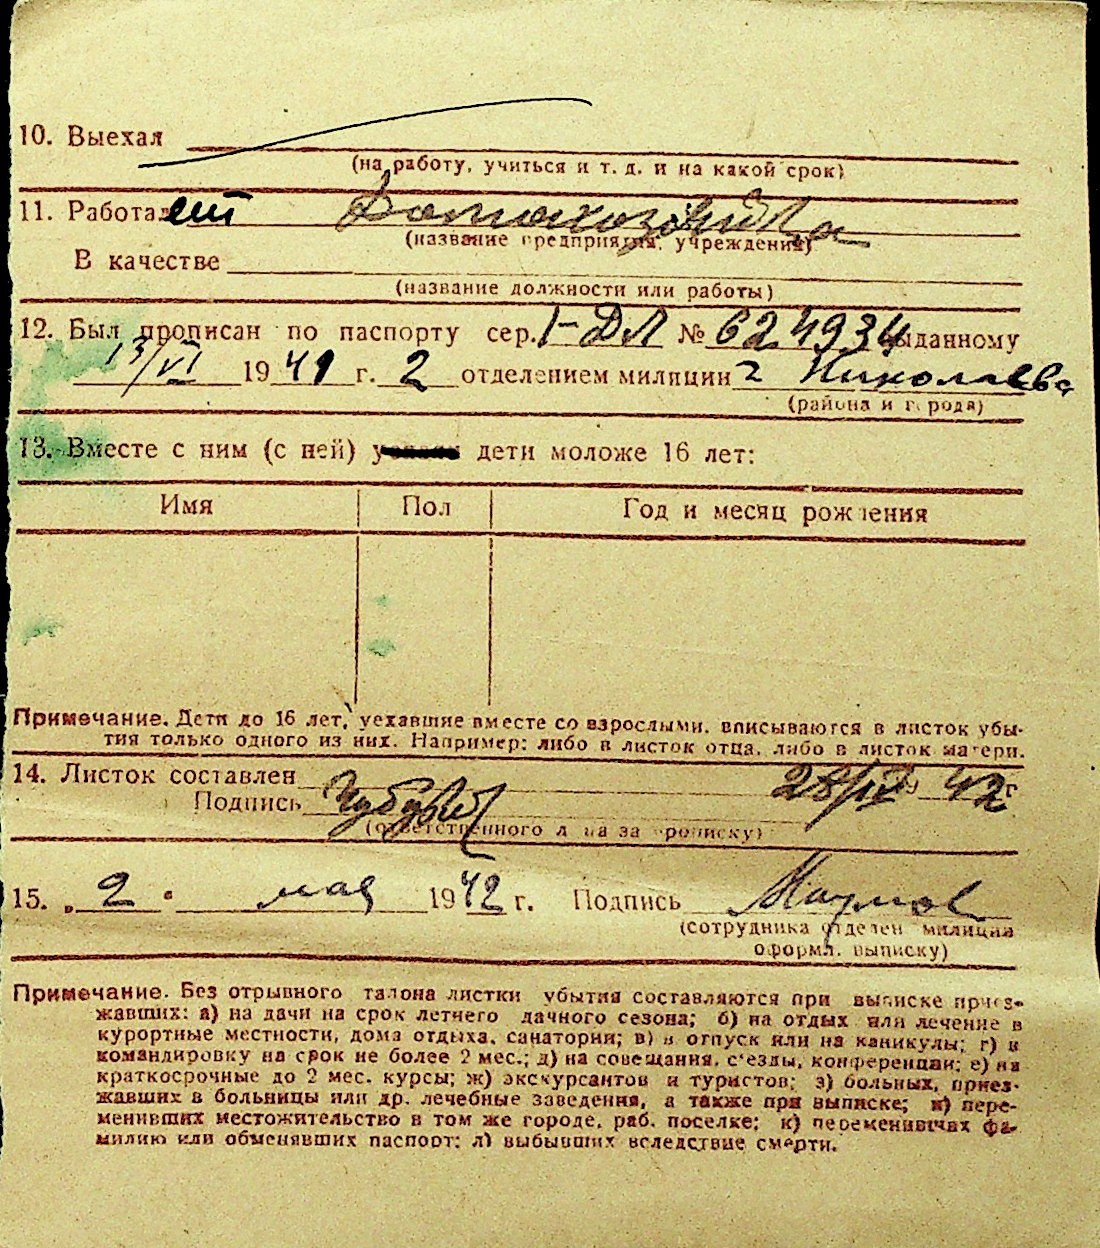 10. Выехал
(на работу, учиться и т. д. и на какой срок)
11. Работает Домохозяйка
(название предприятия, учреждения)
В качестве
(название должности или работы)
12. Был прописан по паспорту сер. I-ДЛ № 624934 выданному
13/VI 1941 г. 2 отделением милиции г Николаева
(района и города)
13. Вместе с ним (с ней) дети моложе 16 лет:
Имя Пол Год и месяц рождения
Примечание. Дети до 16 лет, уехавшие вместе со взрослыми, вписываются в листок убы-
тия только одного из них. Например: либо в листок отца, либо в листок матери.
14. Листок составлен 28/IV 1942 г
Подпись
(ответственного лица за прописку)
15. „2" мая 1942 г. Подпись Наумов
(сотрудника отделен милиции
оформл. выписку)
Примечание. Без отрывного талона листки убытия составляются при выписке приез-
жавших: а) на дачи на срок летнего дачного сезона; б) на отдых или лечение в
курортные местности, дома отдыха, санатории; в) в отпуск или на каникулы; г) в
командировку на срок не более 2 мес.; д) на совещания, с'езды, конференции; е) на
краткосрочные до 2 мес. курсы; ж) экскурсантов и туристов; з) больных, приез-
жавших в больницы или др. лечебные заведения, а также при выписке; и) пере-
менивших местожительство в том же городе, раб. поселке; к) переменивших фа-
милию или обменявших паспорт; л) выбывших вследствие смерти.